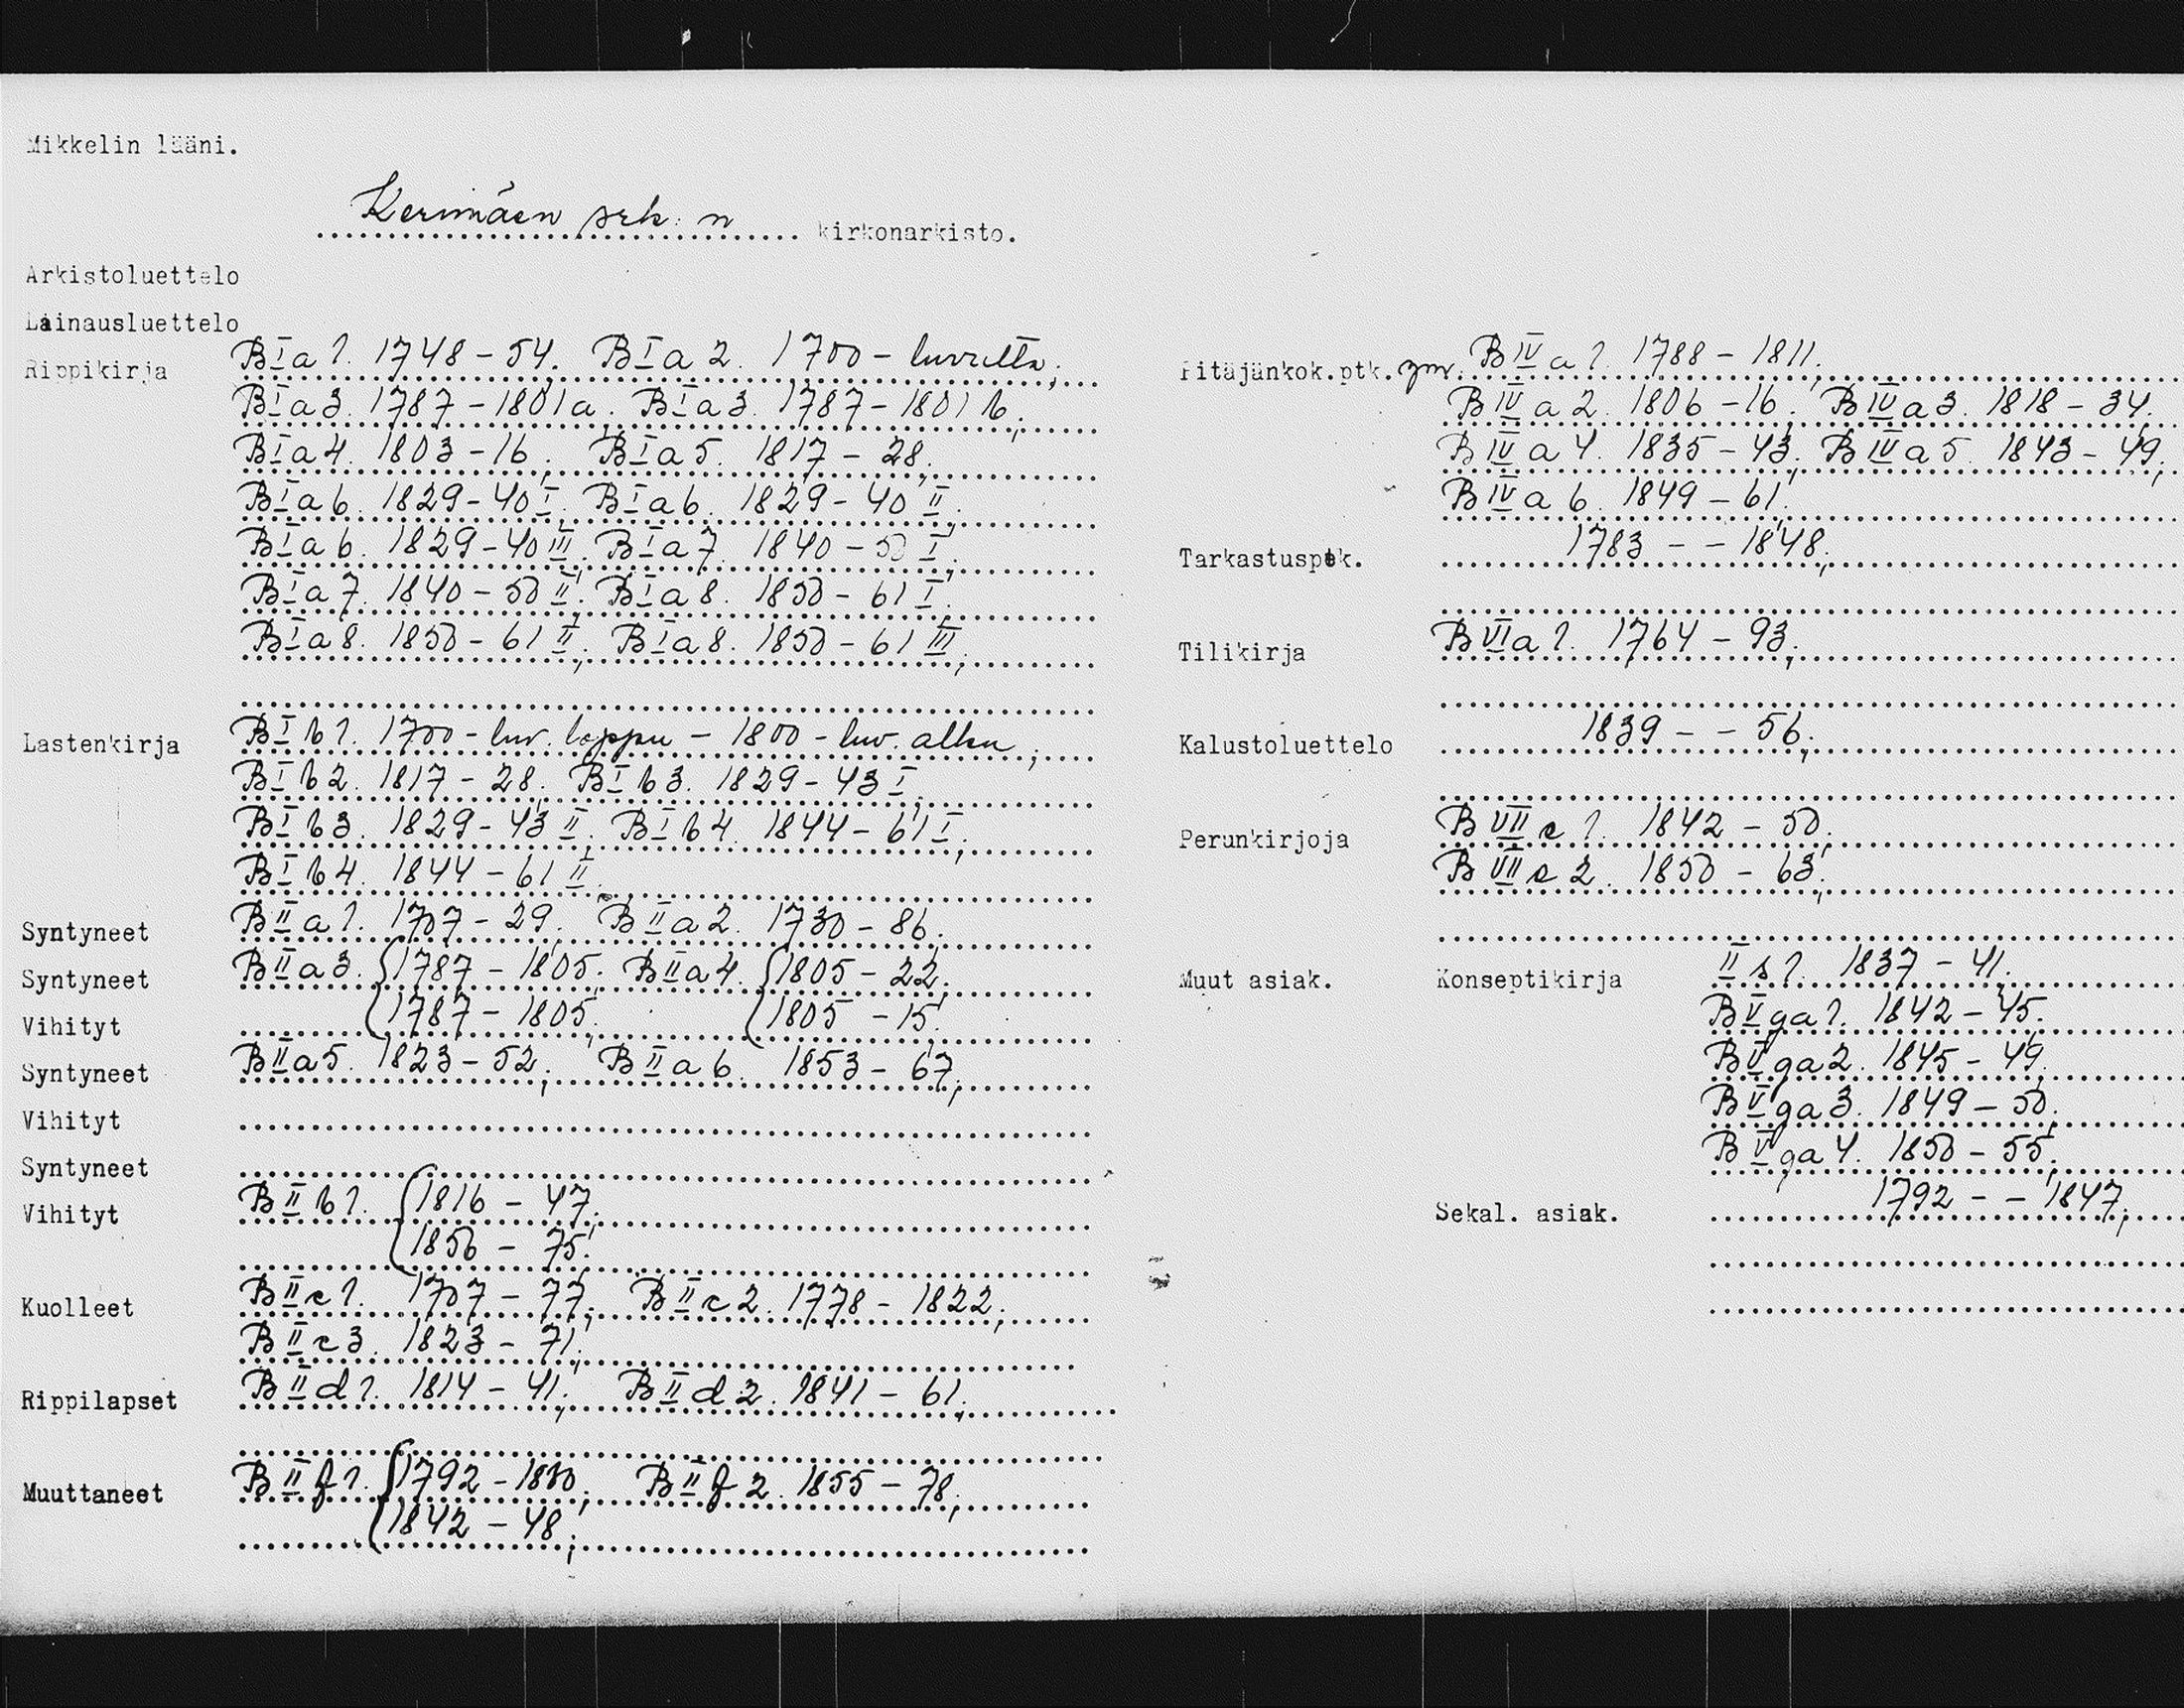 Mikkelin lääni.
Kerimäen srk:n kirkonarkisto.
Arkistoluettelo
Lainausluettelo
Rippikirja BIa1. 1748-54. BIa2. 1700-luvulta;
BIa3. 1787-1801a. BIa3. 1787-1801b;
BIa4. 1803-16; BIa5. 1817-28;
BIa6. 1829-40 I; BIa6. 1829-40 II;
BIa6. 1829-40 III; BIa7. 1840-50 I;
BIa7. 1840-50 II; BIa8. 1850-61 I;
BIa8. 1850-61 II; BIa8. 1850-61 III;
Lastenkirja BIb1. 1700-luv. loppu - 1800-luv. alku;
BIb2. 1817-28. BIb3. 1829-43 I;
BIb3. 1829-43 II; BIb4. 1844-61 I;
BIb4. 1844-61 II.
Syntyneet BIIa1. 1707-29. BIIa2. 1730-86.
Syntyneet BIIa3. {1787-1805; BIIa4. {1805-22;
Vihityt {1787-1805; {1805-15;
Syntyneet BIIa5. 1823-52; BIIa6. 1853-67;
Vihityt
Syntyneet
Vihityt BIIb1. {1816-47;
{1856-75;
Kuolleet BIIc1. 1707-77; BIIc2. 1778-1822;
BIIc3. 1823-71;
Rippilapset BIId1. 1814-41; BIId2. 1841-61;
Muuttaneet BIIf1. {1792-1830; BIIf2. 1855-78;
{1842-48;
Pitäjänkok.ptk. ym. BIVa1. 1788-1811;
BIVa2. 1806-16; BIVa3. 1818-34.
BIVa4. 1835-43; BIVa5. 1843-49;
BIVa6. 1849-61;
Tarkastusptk. 1783 - - 1848;
Tilikirja BVIa1. 1764-93;
Kalustoluettelo 1839 - - 56;
Perunkirjoja BVIIc1. 1842-50;
BVIIc2. 1850-63;
Muut asiak. Konseptikirja II s1. 1837-41.
BVga1. 1842-45.
BVga2. 1845-49.
BVga3. 1849-50.
BVga4. 1850-55;
Sekal. asiak. 1792 - - 1847;